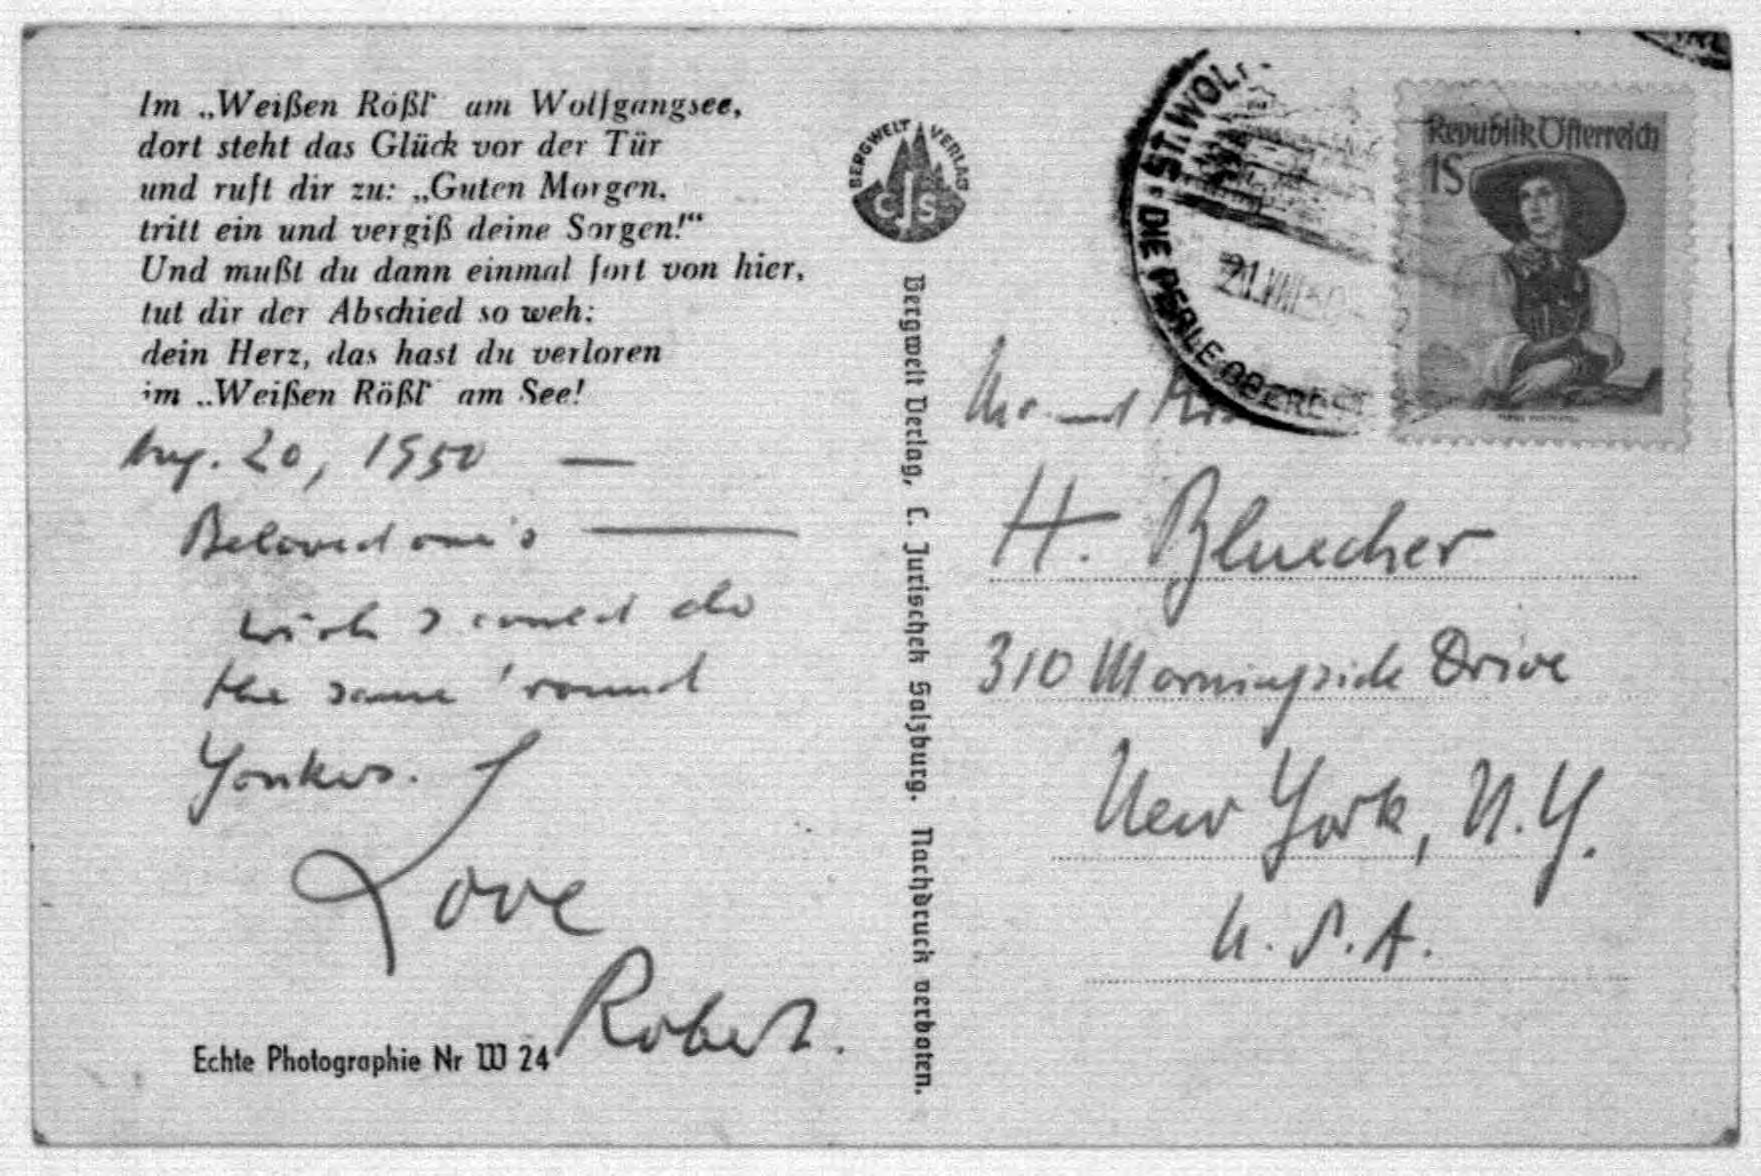 Im „Weißen Rößl“ am Wolfgangsee,
dort steht das Glück vor der Tür
und ruft dir zu: „Guten Morgen,
tritt ein und vergiß deine Sorgen!“
Und mußt du dann einmal fort von hier,
tut dir der Abschied so weh:
dein Herz, das hast du verloren
im „Weißen Rößl“ am See!
Aug. 20, 1950 —
Beloved one's —
wish I could do
the same 'round
Yonkers.
Love
Robert.
Echte Photographie Nr W 24
BERGWELT VERLAG
CJS
Bergwelt Verlag, C. Jurischek Salzburg. Nachdruck verboten.
ST. WOL
DIE PERLE OBERÖST
21.VIII
Republik Österreich
1S
Mr. and Mrs.
H. Bluecher
310 Morningside Drive
New York, N.Y.
U.S.A.